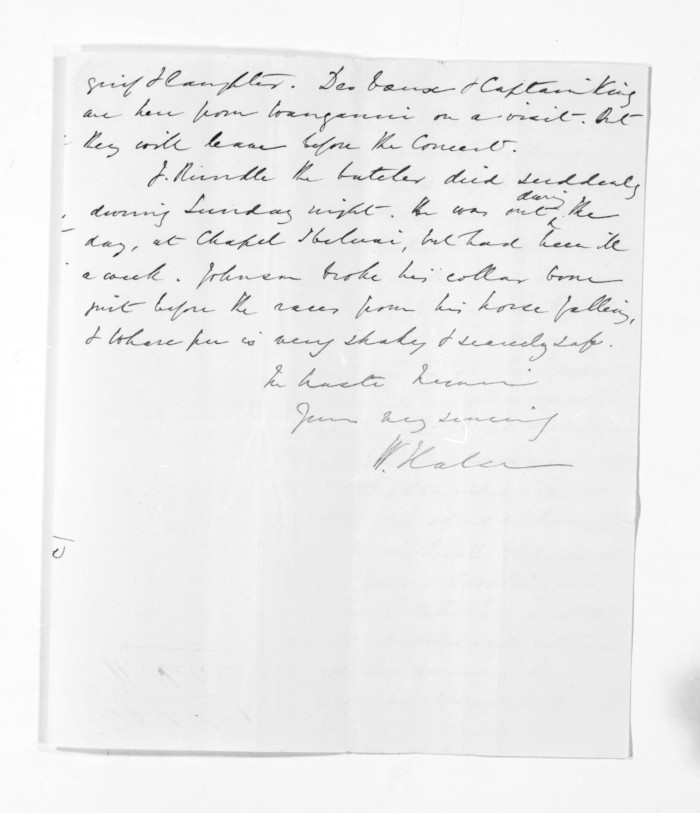 grief & laughter. Des Voeux & Captain King
are here from Wanganui on a visit. But
they will leave before the Concert.
J. Rundle the butcher died suddenly
during Sunday night. He was out during the
day, at Chapel I believe, but had been ill
a week. Johnson broke his collar bone
just before the races from his horse falling,
& is very shaky & scarcely safe.
In haste I remain
Yours very sincerely
W. Halse